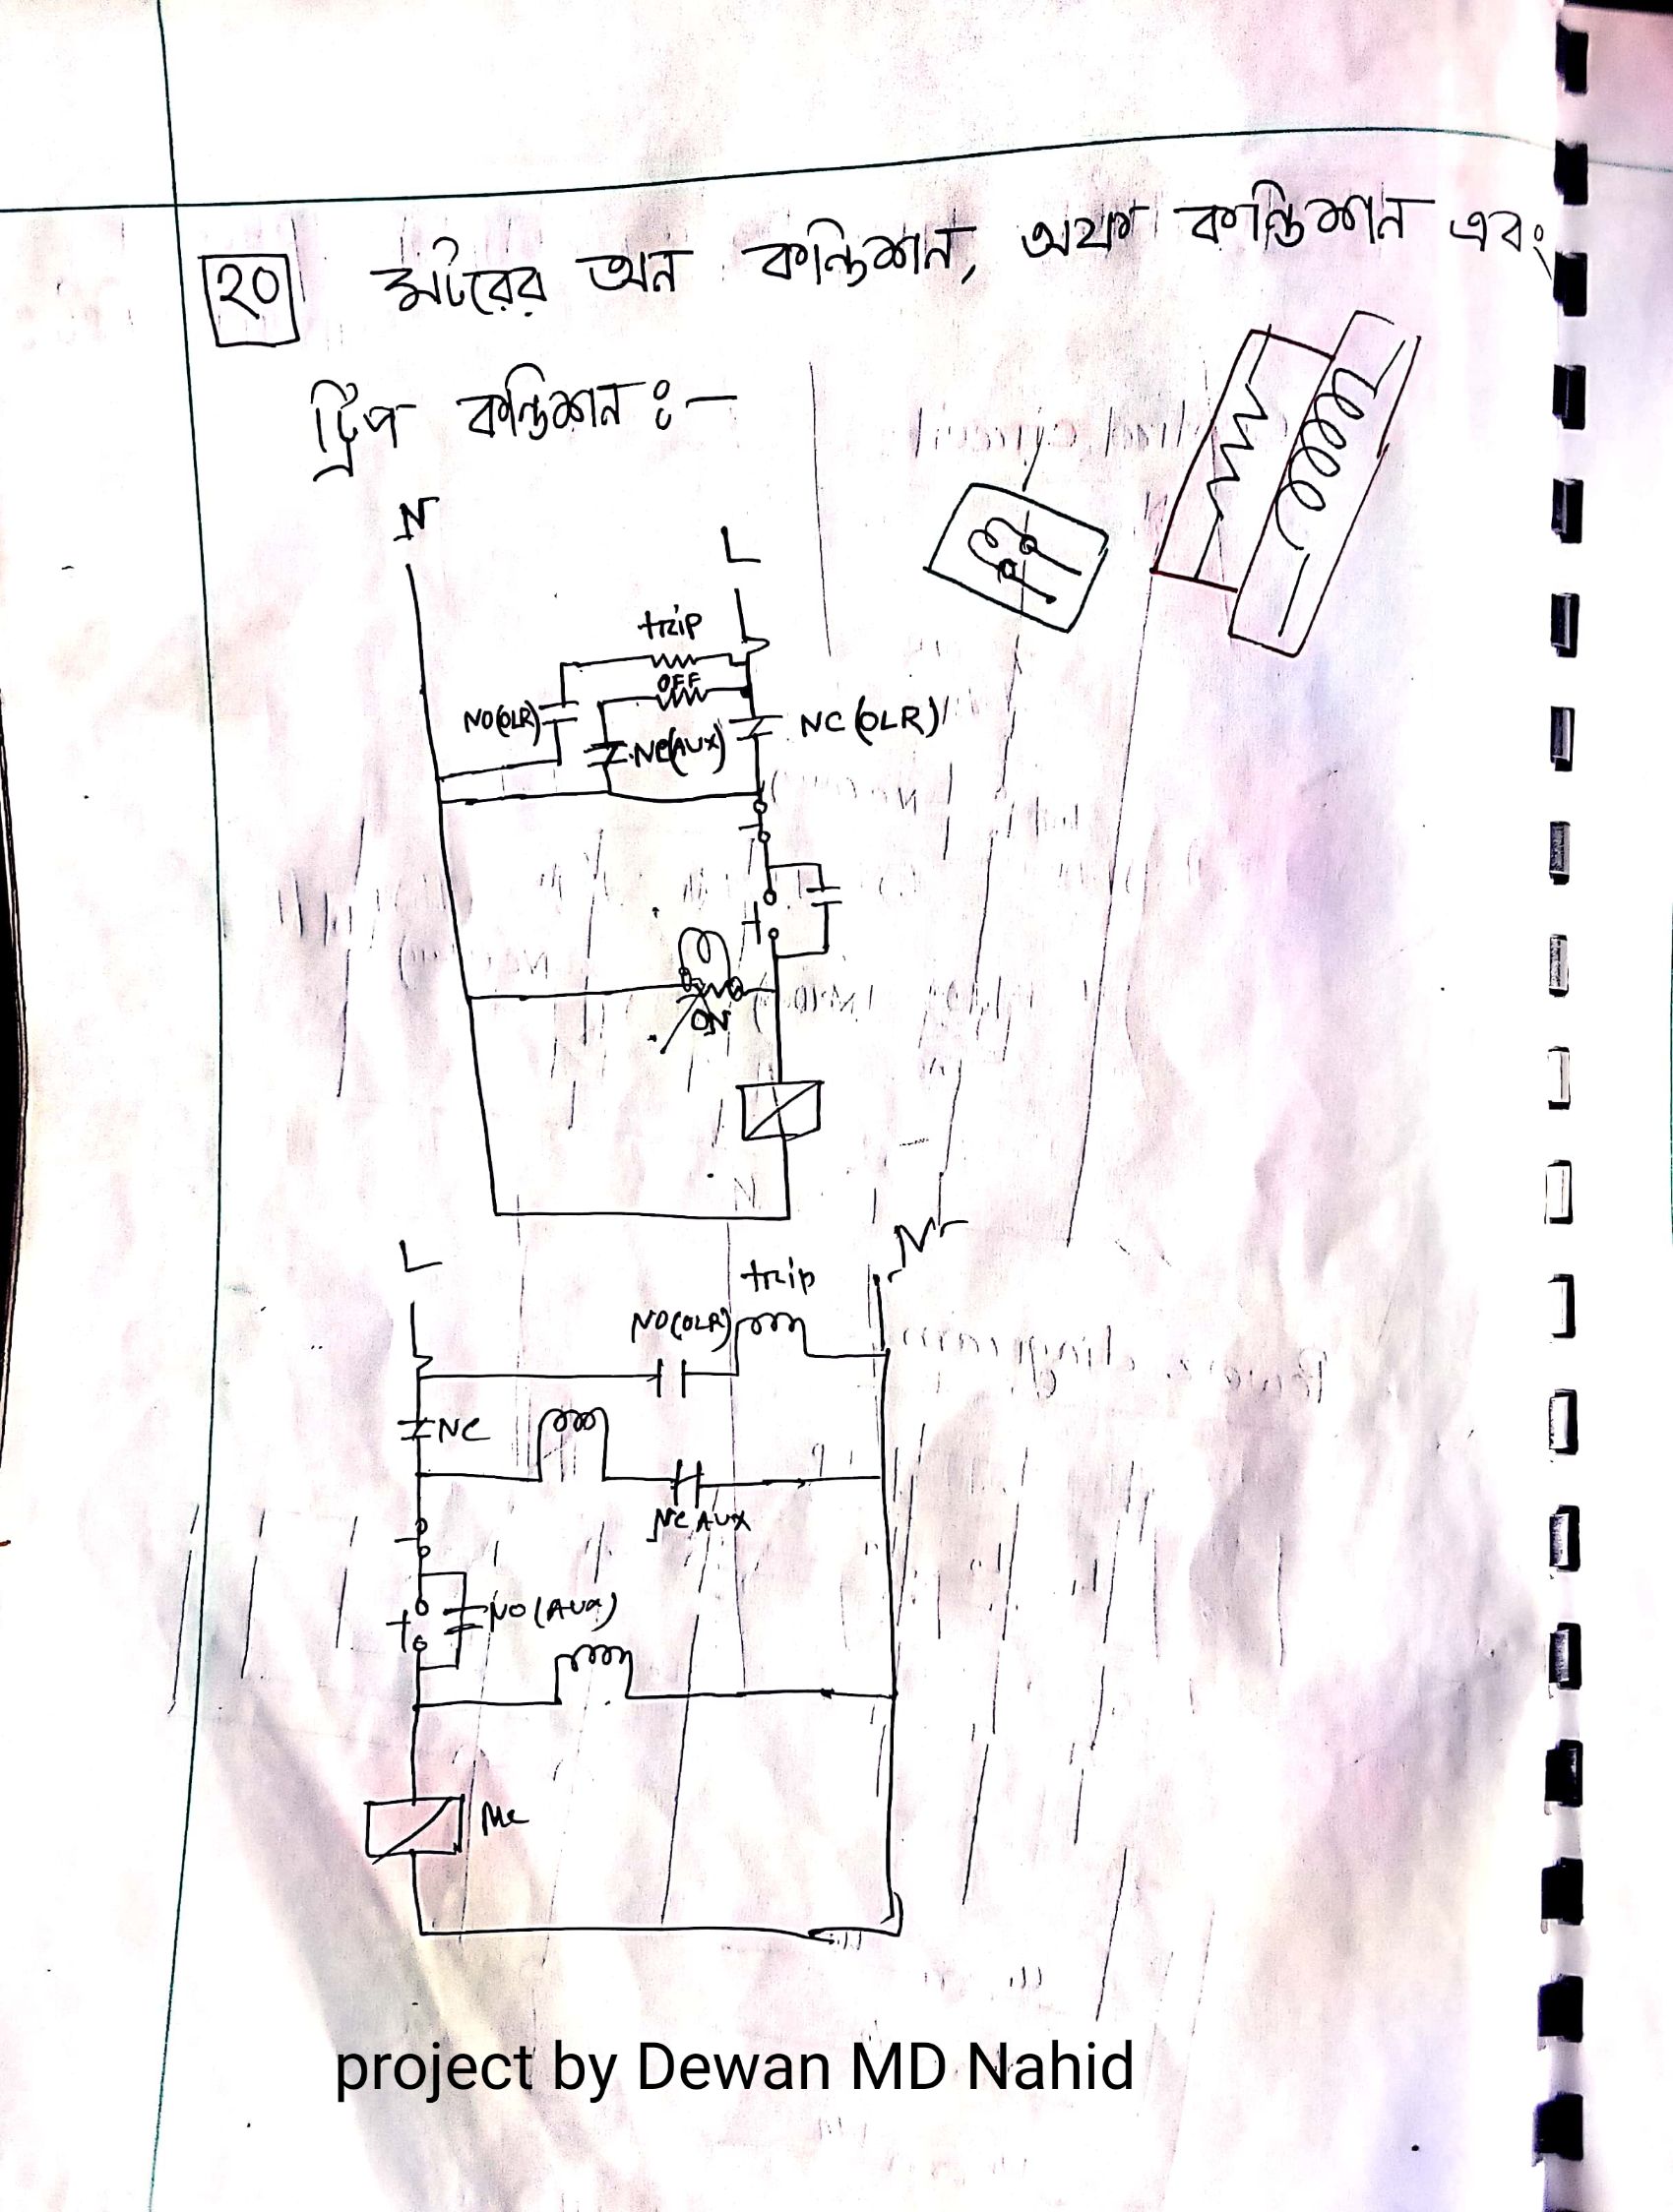 ২০ মটরের অন কন্ডিশন, অফ কন্ডিশন এবং
ট্রিপ কন্ডিশন ঃ-
N
L
trip
OFF
NO(OLR)
NC(AUX)
NC(OLR)
ON
N
L
N
trip
NO(OLR)
NC
NC AUX
NO(AUX)
MC
project by Dewan MD Nahid